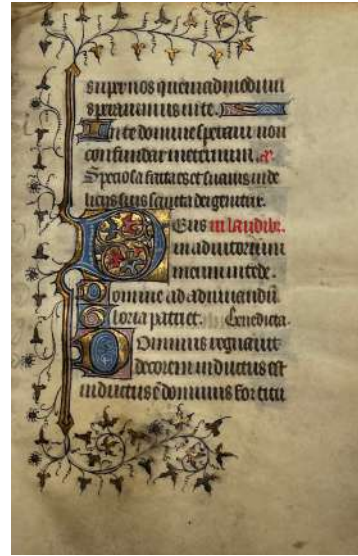 super nos quemadmodum
speravimus in te.
In te domine speravi non
confundar in eternum. 
Speciosa facta es et suavis in de
liciis tuis sancta dei genitrix.
Deus in laudibꝫ.
in adiutorium
meum intende.
Domine ad adiuvandū
Gloria patri et. Benedicta.
Dominus regnavit
decorem indutus est
indutus ē dominus fortitu